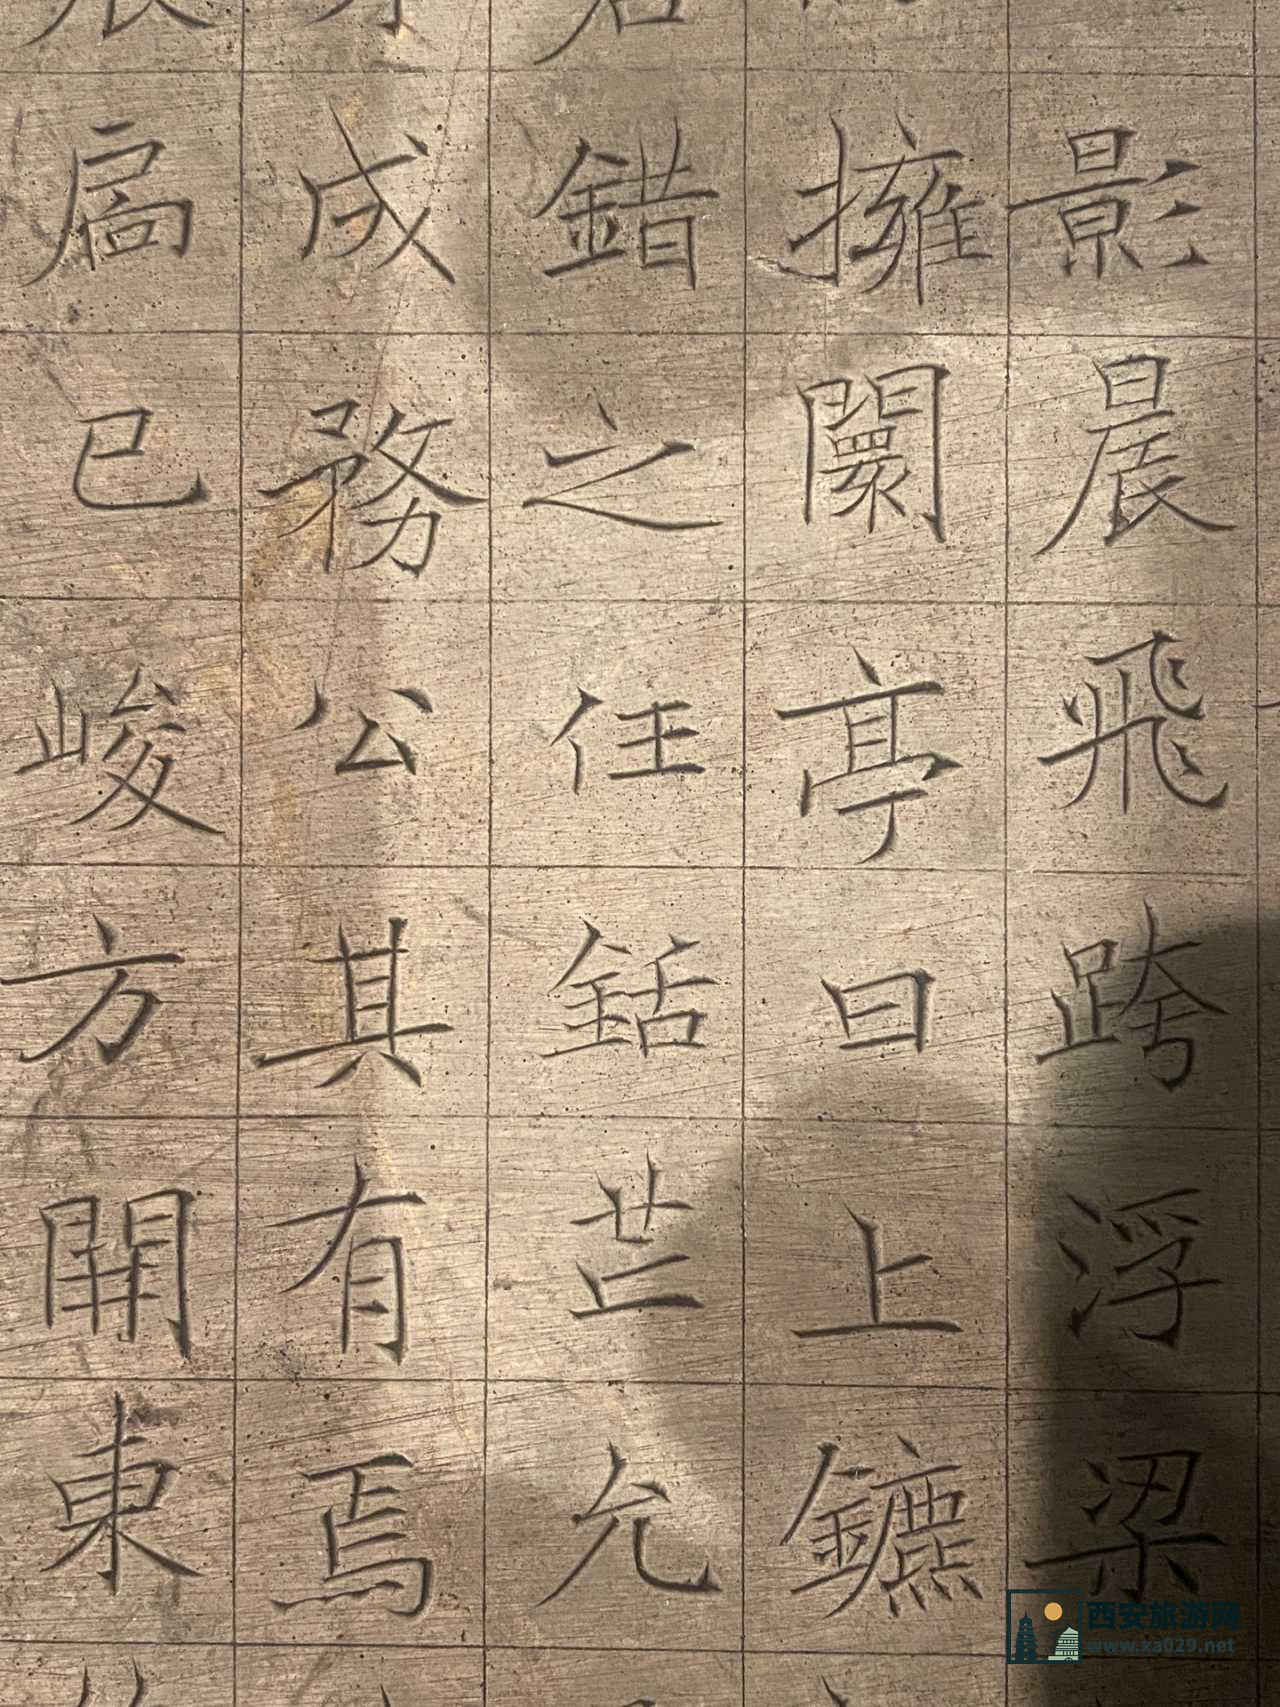 影晨飛跨浮梁
擁闤亭曰上鑣
錯之任銛芒允
成務公其有焉
扃已峻方開東
西安旅游网
www.xa029.net